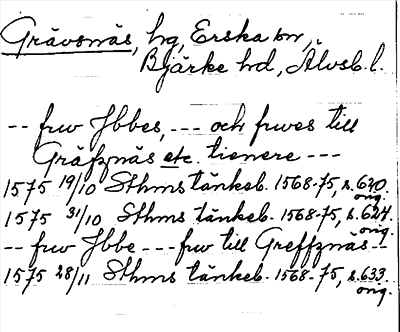 Grävsnäs, hg, Erska sn,
Bjärke hd, Älvsb. l.
-- frw Jbbes, --- och frwes till
Gräfznäs etc. tienere ---
1575 19/10 Sthms tänkeb. 1568-75, s. 620.
orig.
1575 31/10 Sthms tänkeb. 1568-75, s. 624.
orig.
-- frw Jbbe --- frw till Greffznäs --
1575 28/11 Sthms tänkeb. 1568-75, s. 633.
orig.